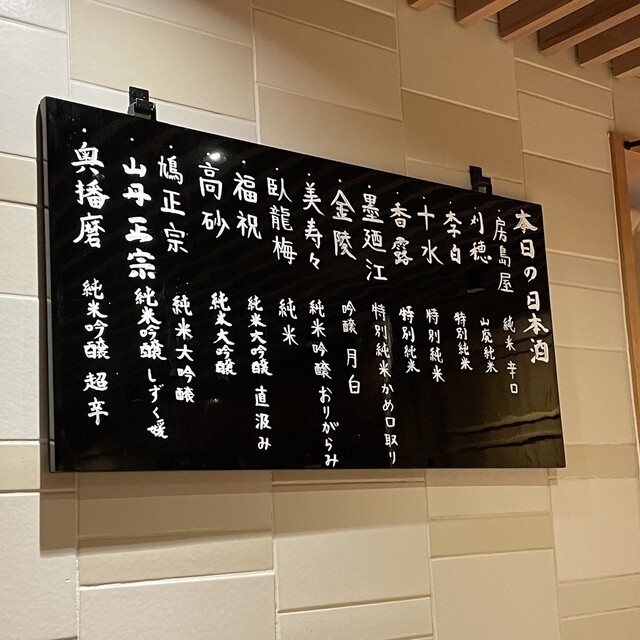 本日の日本酒
・房島屋 純米 辛口
・刈穂 山廃純米
・李白 特別純米
・十水 特別純米
・香露 特別純米
・墨廼江 特別純米かめ口取り
・金陵 吟醸 月白
・美寿々 純米吟醸おりがらみ
・臥龍梅 純米
・福祝 純米大吟醸 直汲み
・高砂 純米大吟醸
・鳩正宗 純米大吟醸
・山丹正宗 純米吟醸しずく媛
・奥播磨 純米吟醸 超辛